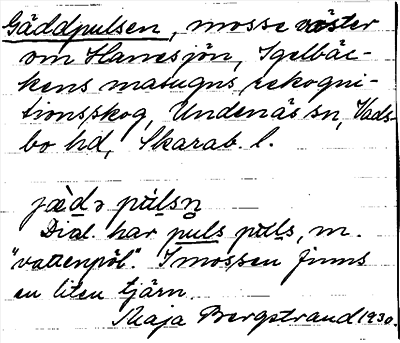 Gäddpulsen, mosse väster
om Hamsjön, Igelbäc-
kens masugns rekogni-
tionsskog, Undenäs sn, Vads-
bo hd, Skarab. l.
jæ̀də pu̇lsn̥
Dial har puls pu̇ls, m.
"vattenpöl". I mossen finns
en liten tjärn.
Maja Bergstrand 1930.